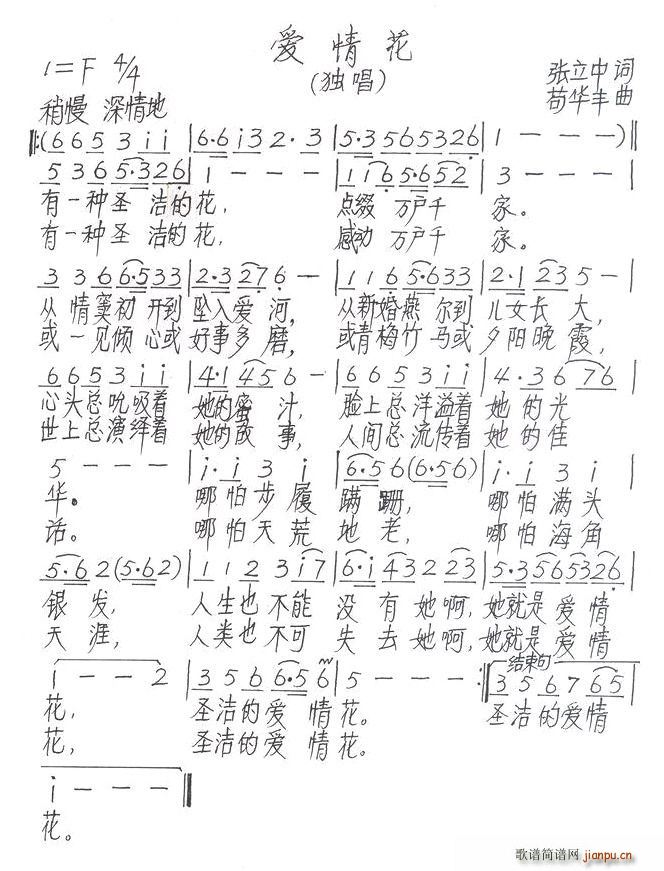 爱情花
(独唱)
1=F 4/4
张立中 词
稍慢 深情地
苟华丰 曲
‖:(6 6 5 3 i i | 6·6 i 3 2· 3 | 5·3 5 6 5 3 2 6 | 1 - - - )‖
5 3 6 5·3 2 6 | 1 - - - | 1 1 6 5·6 5 2 | 3 - - - |
有一种圣 洁的花, 点缀 万户千 家。
有一种圣 洁的花, 感动 万户千 家。
3 3 6 6·5 3 3 | 2·3 2 7 6 - | 1 1 6 5·6 3 3 | 2·1 2 3 5 - |
从 情窦初 开到 坠入爱 河, 从新婚燕 尔到 儿女长 大,
或一见倾 心或 好事多 磨, 或青梅竹 马或 夕阳晚 霞,
6 6 5 3 i i | 4·1 4 5 6 - | 6 6 5 3 i i | 4·3 6 7 6 |
心头总吮吸着 她的蜜 汁, 脸上总洋溢着 她 的光
世上总演绎着 她的故 事, 人间总流传着 她 的佳
5 - - - | i· i 3 i | 6·5 6 (6·5 6) | i· i 3 i |
华。 哪怕步履 蹒 跚, 哪怕满头
话。 哪怕天荒 地 老, 哪怕海角
5·6 2 (5·6 2) | 1 1 2 3 i 7 | 6·i 4 3 2 2 3 | 5·3 5 6 5 3 2 6 |
银 发, 人生也 不能 没 有 她啊, 她就是 爱 情
天 涯, 人类也 不可 失 去 她啊, 她就是 爱 情
结束句
i - - 2 | 3 5 6 6·5 6 | 5 - - - :‖ 3 5 6 7 6 5 |
花, 圣洁的爱 情花。 圣洁的爱情
花, 圣洁的爱 情花。
i - - - ‖
花。
歌谱简谱网 jianpu.cn